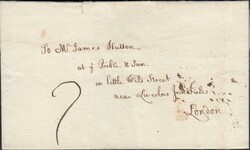 To Mr James Hutton
at ye Bible & Sun
in little Wild Street
near Lincolns Inn Fields
London
7